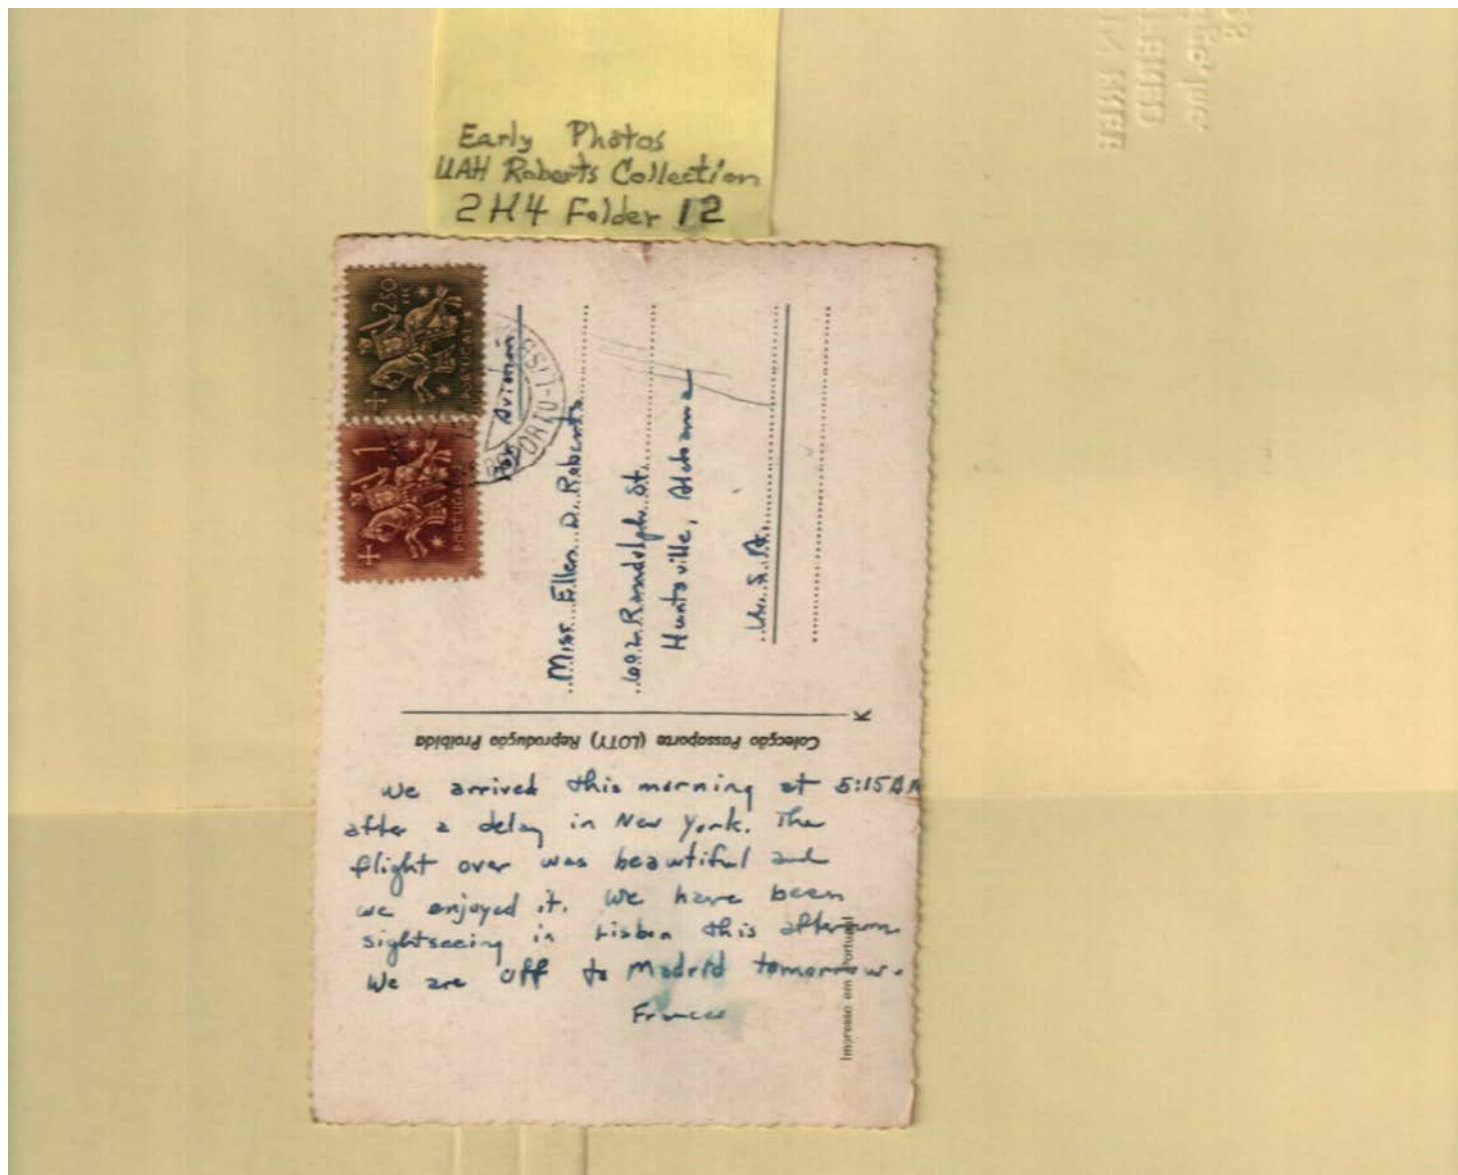 Early Photos
UAH Roberts Collection
2H4 Folder 12
2$50
PORTUGAL
1
PORTUGAL
Par Avion
Miss Ellen D. Roberts
Randolph St.
Huntsville, Alabama
U.S.A.
K
Colecção Passaporte (LOTY) Reprodução Proibida
We arrived this morning at 5:15 AM
after a delay in New York. The
flight over was beautiful and
we enjoyed it. We have been
sightseeing in Lisbon this afternoon
We are off to Madrid tomorrow.
Frances
Impresso em Portugal